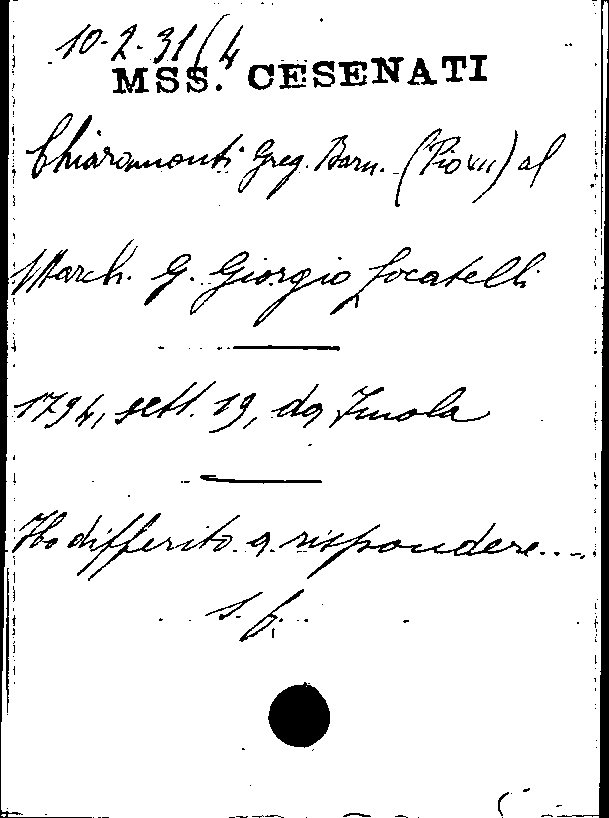 10-2-31/4
MSS. CESENATI
Chiaramonti Greg. Barn. (Pio VII) al
March. G. Giorgio Locatelli
1794, sett. 19, da Imola
Ho differito a rispondere...
s. f.